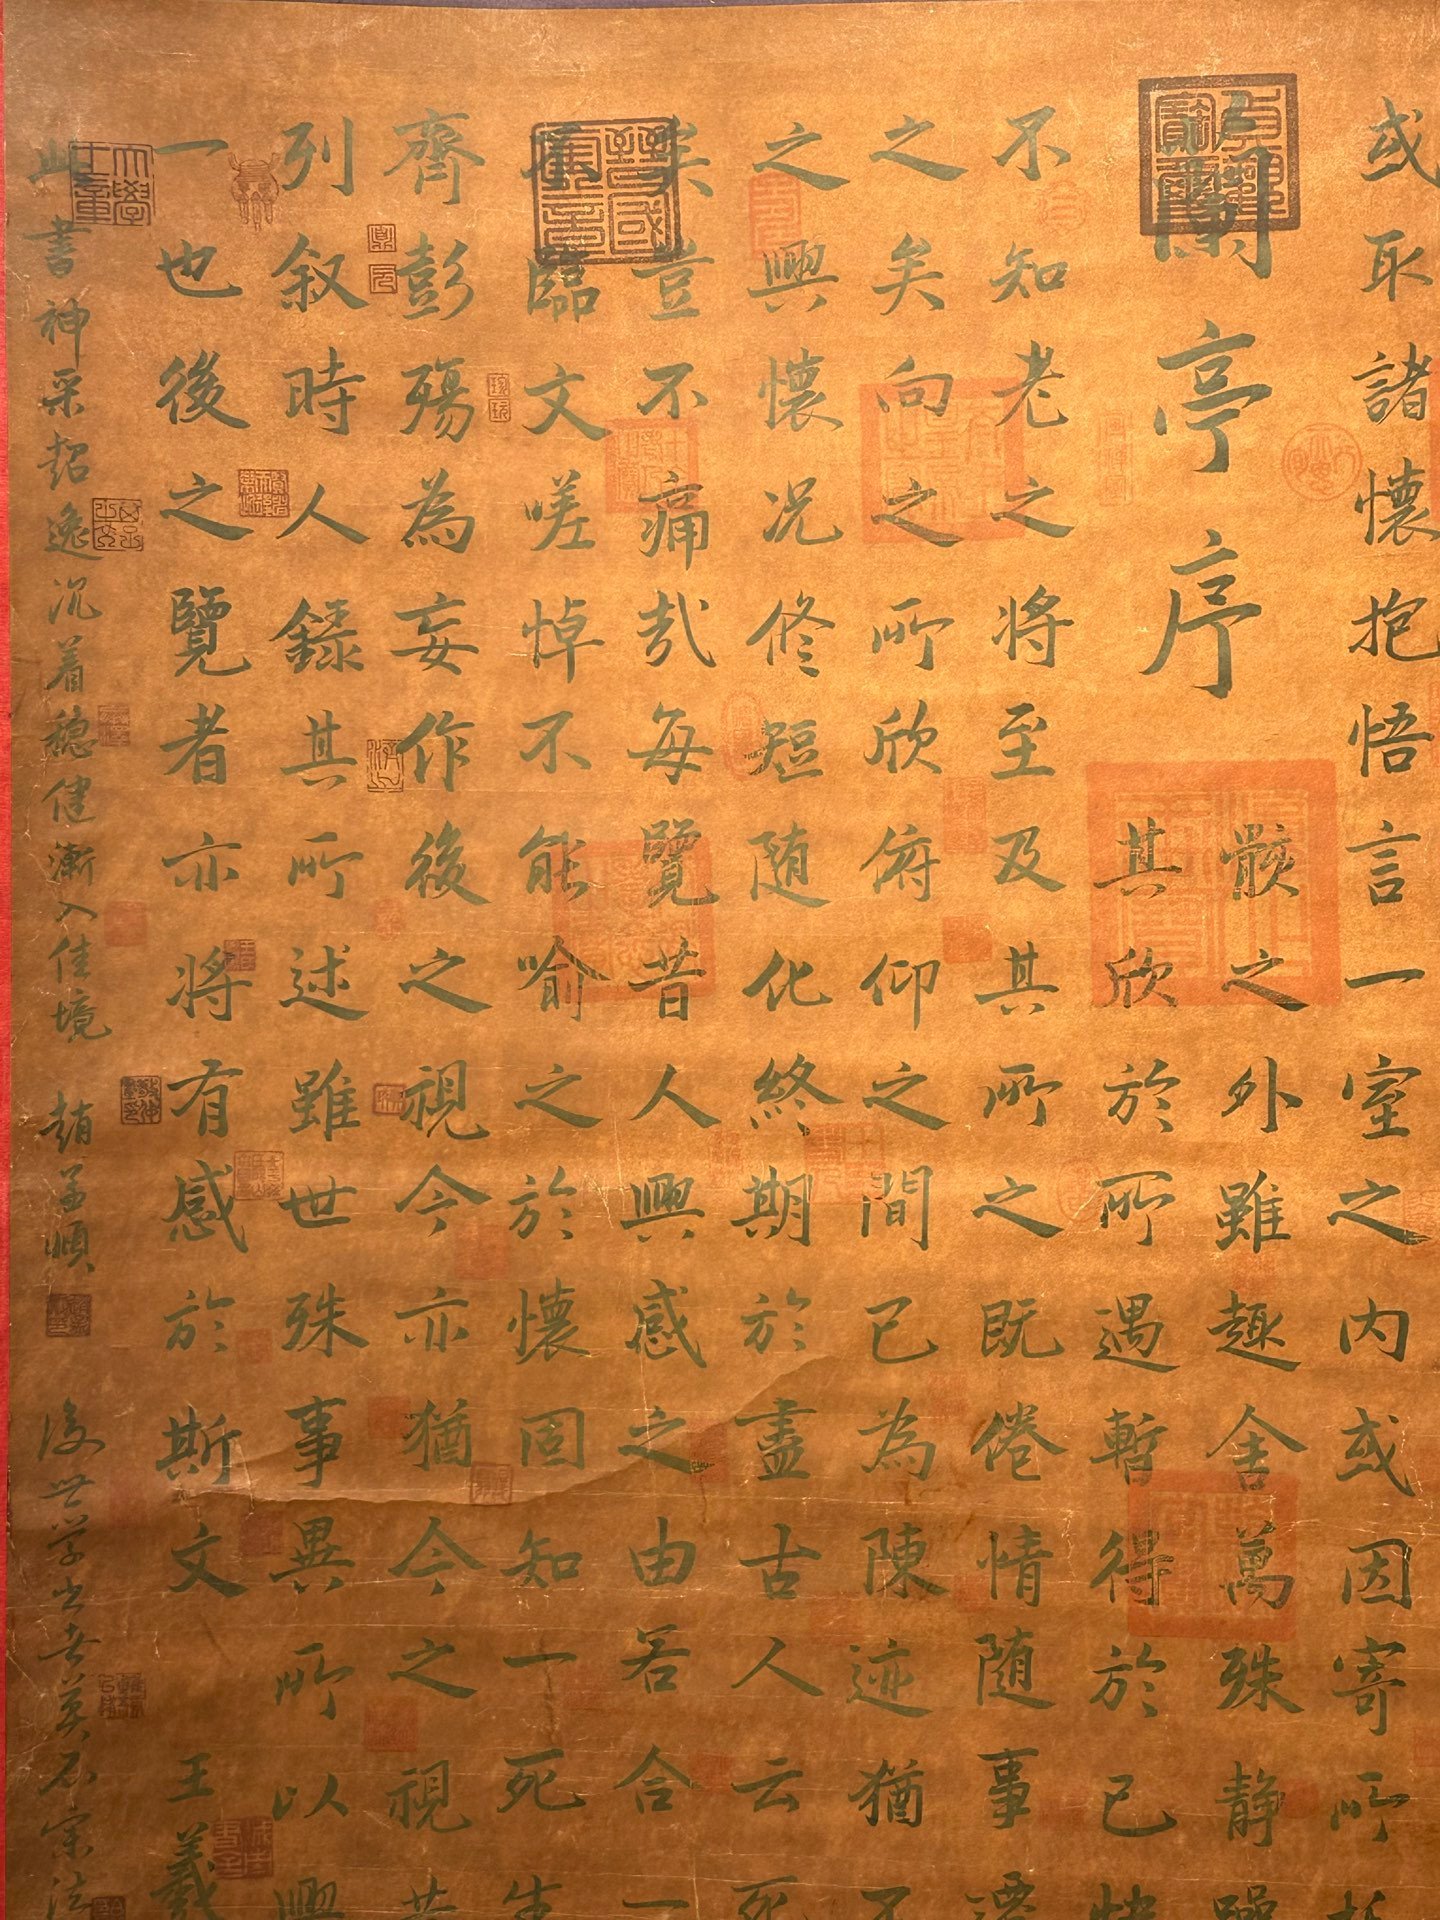 或取諸懷抱悟言一室之内或因寄所
蘭亭序
骸之外雖趣舍萬殊静躁
其欣於所遇暫得於己快
不知老之將至及其所之既倦情随事遷
之矣向之所欣俯仰之間已為陳迹猶不
之興懷况修短随化終期於盡古人云死
矣豈不痛哉每覽昔人興感之由若合一
臨文嗟悼不能喻之於懷固知一死生
齊彭殤為妄作後之視今亦猶今之視
列叙時人録其所述雖世殊事異所以興
一也後之覽者亦將有感於斯文 王羲
此書神采超逸沉着穏健漸入佳境 趙孟頫 後世學書者莫不宗法